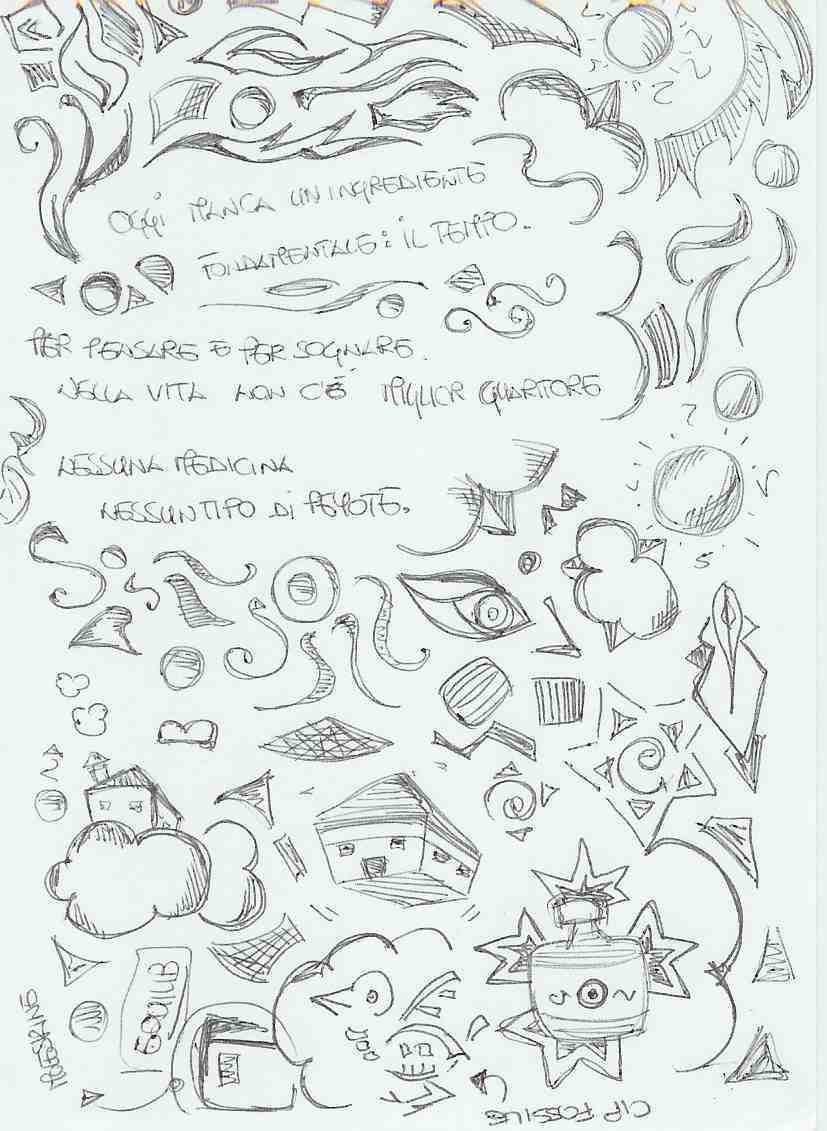 OGGI MANCA UN INGREDIENTE
FONDAMENTALE: IL TEMPO.
PER PENSARE E PER SOGNARE.
NELLA VITA NON C'È MIGLIOR GUARITORE
NESSUNA MEDICINA
NESSUN TIPO DI PEYOTE.